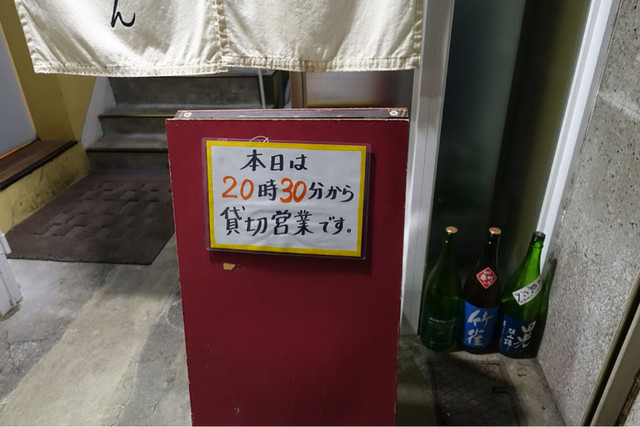 ん
本日は
20時30分から
貸切営業です。
竹雀